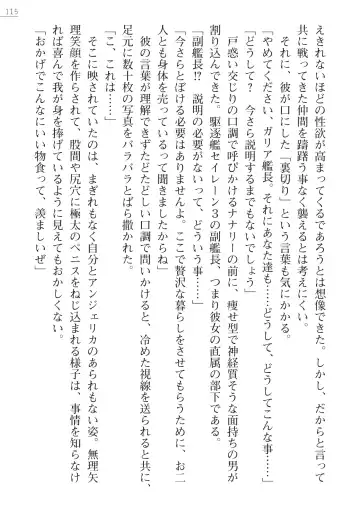 115
えきれないほどの性欲が高まってくるであろうとは想像できた。しかし、だからと言って
共に戦ってきた仲間を躊躇う事なく襲えるとは考えにくい。
それに、彼が口にした「裏切り」という言葉も気にかかる。
「やめてください、ガリア艦長。それにあなた達も……どうして、どうしてこんな事……」
「どうして？ 今さら説明するまでもないでしょう」
戸惑い交じりの口調で呼びかけるナナリーの前に、痩せ型で神経質そうな面持ちの男が
割り込んできた。駆逐艦セイレーン３の副艦長、つまり彼女の直属の部下である。
「副艦長⁉ 説明の必要がないって、どういう事……」
「今さらとぼける必要はありませんよ。ここで贅沢な暮らしをさせてもらうために、お二
人とも身体を売っているって聞きましたからね」
彼の言葉が理解できずたどたどしい口調で問いかけると、冷めた視線を送られると共に、
足元に数十枚の写真をバラバラとばら撒かれた。
「こ、これは……」
そこに映されていたのは、まぎれもなく自分とアンジェリカのあられもない姿。無理矢
理笑顔を作らされて、股間や尻穴に極太のペニスをねじ込まれる様子は、事情を知らなけ
れば喜んで我が身を捧げているように見えてもおかしくない。
「おかげでこんなにいい物食って、羨ましいぜ」